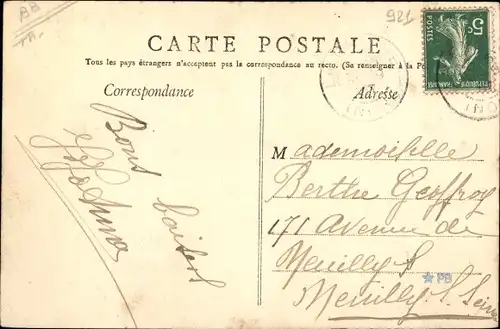 921
CARTE POSTALE
Tous les pays étrangers n'acceptent pas la correspondance au recto. (Se renseigner à la Po
Correspondance
Adresse
Bons baisers
Mademoiselle
Berthe Geoffroy
171 Avenue de
Neuilly S
Neuilly S. Seine
PB
5c
POSTES